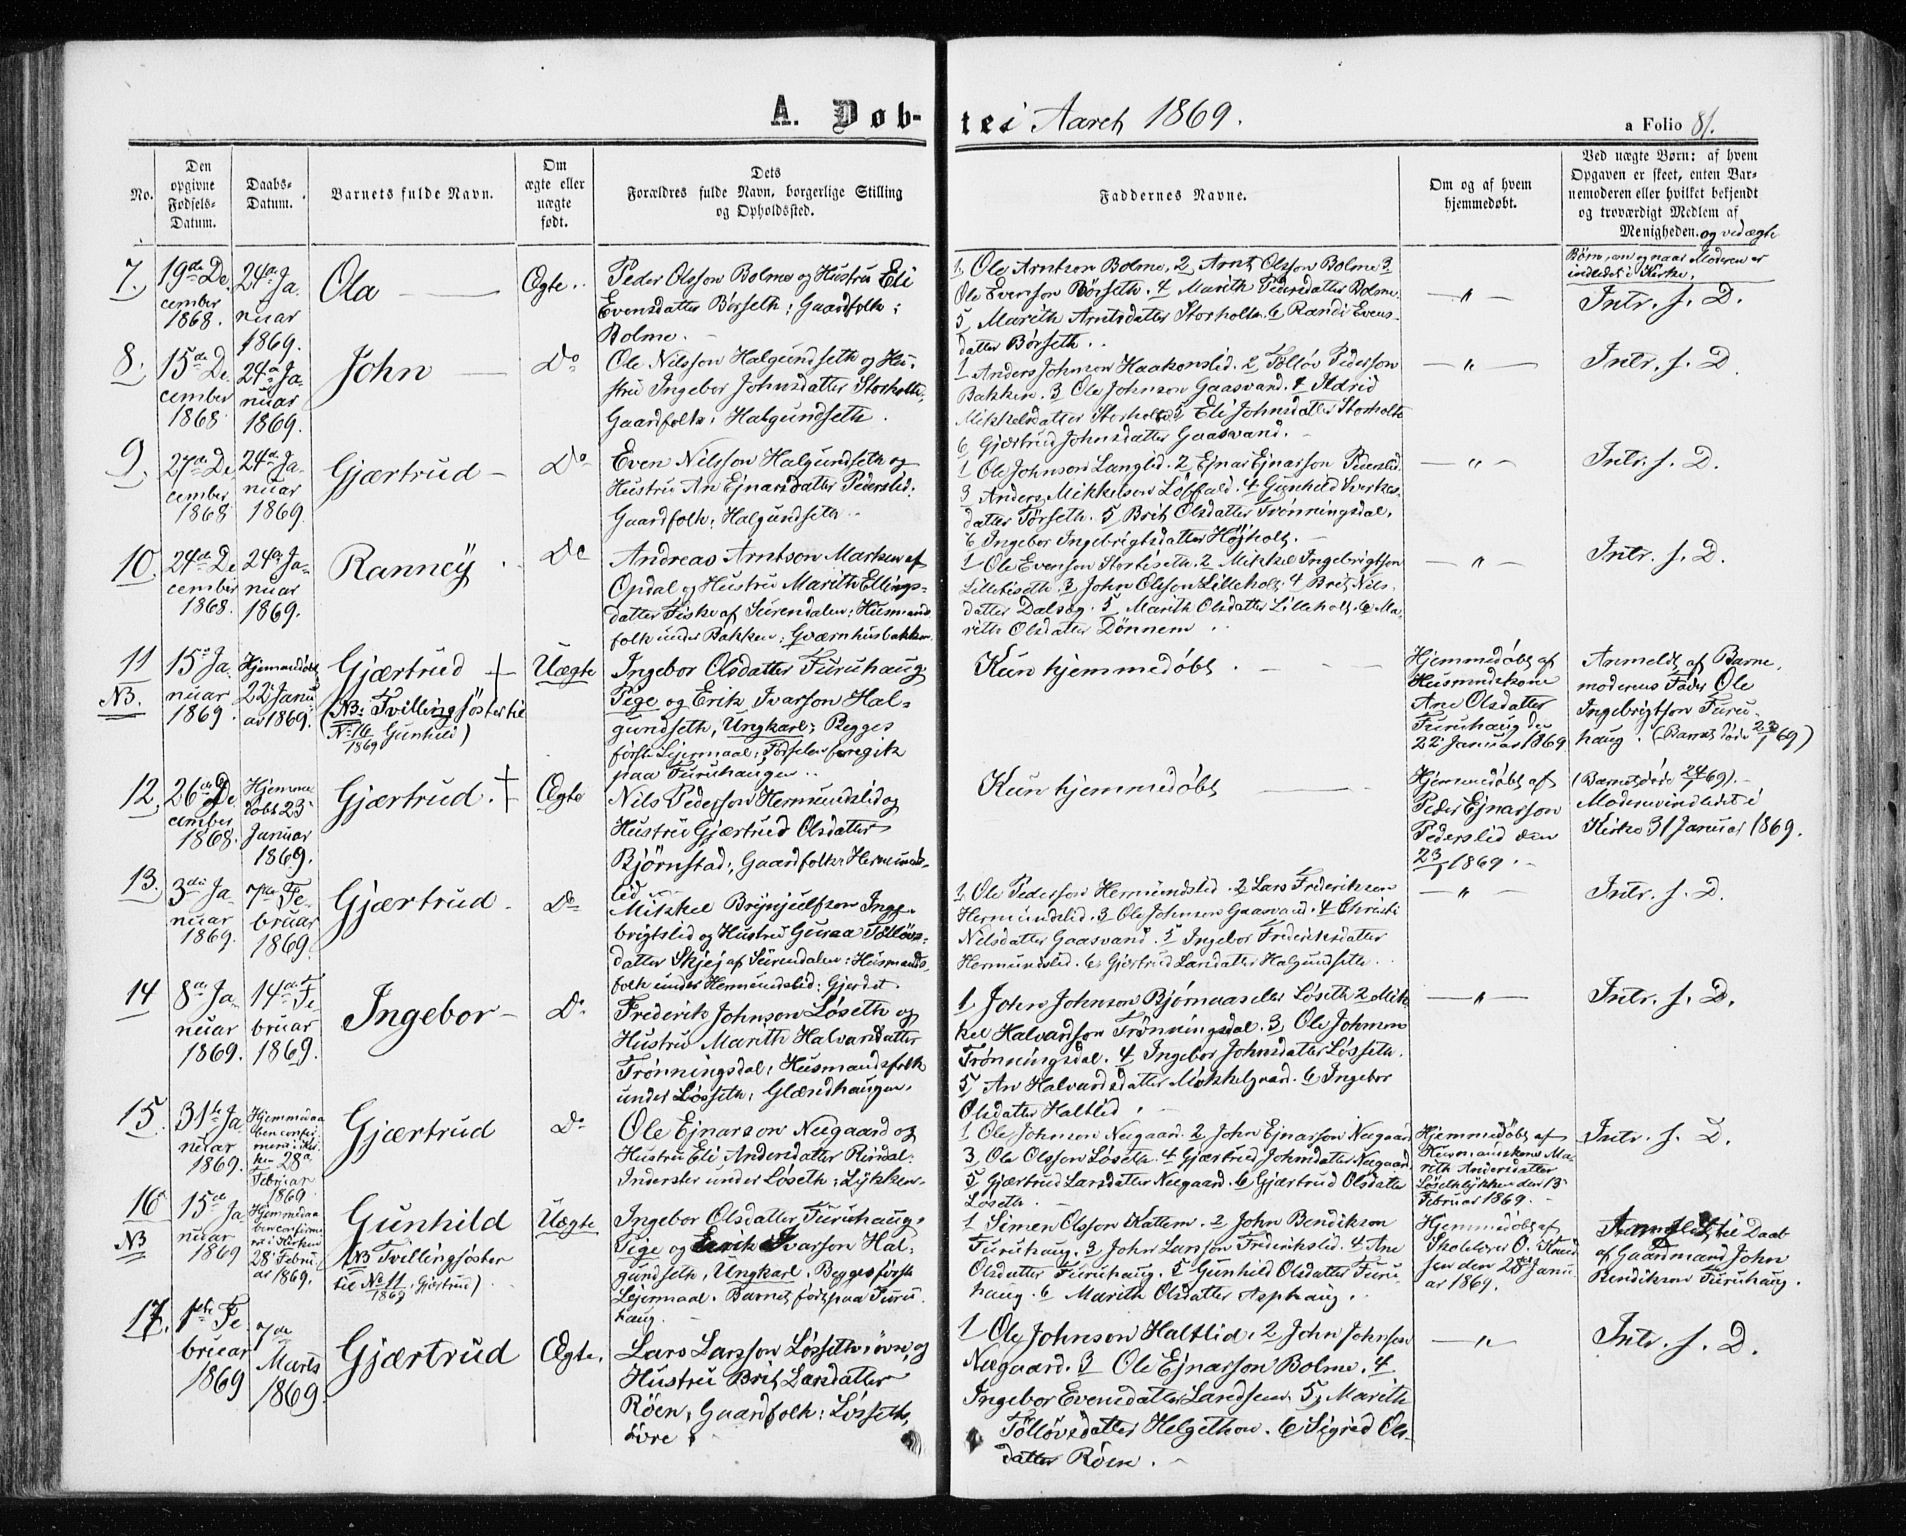 A. Døb-
tei Aaret 1869.
a Folio 81.
No.
Den
opgivne
Fødsels-
Datum.
Daabs-
Datum.
Barnets fulde Navn.
Om
ægte eller
uægte
født.
Dets
Forældres fulde Navn, borgerlige Stilling
og Opholdssted.
Faddernes Navne.
Om og af hvem
hjemmedøbt.
Ved uægte Børn: af hvem
Opgaven er skeet, enten Bar-
nemoderen eller hvilket bekjendt
og troværdigt Medlem af
Menigheden. og ved ægte
Børn, om og naar Moderen er
indledet i Kirke.
7.
19de De
cember
1868.
24de Ja
nuar
1869.
Ola
Ægte.
Peder Olsson Bolme og Hustru Eli
Evensdatter Børseth; Gaardfolk:
Bolme.
1, Ole Arntson Bolme, 2, Arnt Olsson Bolme 3
Ole Evensson Børseth. 4 Marith Pedersdatter Bolme.
5, Marith Arntsdatter Storholt. 6 Randi Evens-
datter Børseth.
— " —
Intr. f. D.
8.
15de De
cember
1868
24de Ja
nuar
1869.
John
Do
Ole Nilsson Halgundseth og Hu-
stru Ingebor Johnsdatter Storholt:
Gaardfolk; Halgundseth.
1 Anders Johnson Haakonslid. 2 Tølløv Pedersson
Bakken. 3 Ole Johnson Gaasvand. 4 Ildrid
Mikkelsdatter Storholt. 5 Eli Johnsdatter Storholt
6 Gjærtrud Johnsdatter Gaasvand.
— " —
Intr. f. D.
9.
27de De
cember
1868
24de Ja
nuar
1869
Gjærtrud
Do
Even Nilsson Halgundseth og
Hustru An Ejnarsdatter Pederslid:
Gaardfolk; Halgundseth.
1 Ole Johnson Langlid. 2 Ejnar Ejnarson Pederslid.
3 Anders Mikkelson Løffald. 4 Gunhild Sverkes-
datter Tørseth. 5 Brit Olsdatter Trønningsdal,
6 Ingebor Ingebrigtsdatter Højholt.
— " —
Intr. f. D.
10.
24de De
cember
1868.
24de Ja
nuar
1869.
Ranney
Do
Andreas Arntson Marken af
Opdal og Hustru Marith Ellings-
datter Fiske af Surendalen; Husmands
folk under Bakken; Qværnhusbakken.
1 Ole Evenson Storbiseth. 2 Mikkel Ingebrigtson
Lillebiseth. 3 John Olsson Lilleholt. 4 Brit Nils-
datter Dalsøg. 5 Marith Olsdatter Lilleholt. 6 Ma-
rith Olsdatter Dønnem.
— " —
Intr. f. D.
11
NB.
15de Ja
nuar
1869.
Hjemmedøbt
22 Janu
ar 1869.
Gjærtrud †
(NB: Tvillingsøster til
No 16/1869 Gunhild)
Uægte
Ingebor Olsdatter Furuhaug
Pige og Erik Ivarson Hal-
gundseth, Ungkarl; Begges
første Lejermaal; Fødselen foregik
paa Furuhaugen.
Kun hjemmedøbt.
Hjemmedøbt af
Husmandskone
Ane Olsdatter
Furuhaug den
22 Januar 1869
Anmeldt af Barne-
moderens Fader Ole
Ingebrigtson Furu-
haug. (Barnet døde 23/1 69)
12.
26de De
cember
1868.
Hjemme
døbt 23
Januar
1869.
Gjærtrud. †
Ægte
Nils Pederson Hermundslid og
Hustru Gjærtrud Olsdatter
Bjørnstad; Gaardfolk: Hermunds-
lid
Kun hjemmedøbt
Hjemmedøbt af
Peder Ejnarsson
Pederslid den
23/1 1869.
(Barnet døde 24/1 69).
Moderen indledet i
Kirke 31 Januar 1869.
13.
3die Ja
nuar
1869.
7de Fe-
bruar
1869.
Gjærtrud.
Do
Mikkel Brynjulfson Inge-
brigtslid og Hustru Guraa Tølløvs-
datter Skjej af Surendalen; Husmands-
folk under Hermundslid: Gjerdet.
1, Ole Pederson Hermundslid. 2 Lars Frederikson
Hermundslid. 3 Ole Johnson Gaasvand. 4 Christi
Nilsdatter Gaasvand. 5 Ingebor Frederiksdatter
Hermundslid. 6 Gjertrud Larsdatter Halgundseth.
— " —
Intr. f. D.
14
8de Ja-
nuar
1869.
14de Fe
bruar
1869.
Ingebor
Do
Frederik Johnson Løseth og
Hustru Marith Halvardsdatter
Trønningsdal; Husmandsfolk
under Løsseth; Glændhaugen.
1, John Johnson Bjørnaas eller Løseth 2 Mik
kel Halvardson Trønningsdal. 3, Ole Johnson
Trønningsdal. 4 Ingebor Johnsdatter Løsseth.
5 An Halvardsdatter Mikkelgaard. 6 Ingebor
Olsdatter Haltlid.
— " —
Intr. f. D.
15.
31te Ja
nuar
1869.
Hjemmedaa
ben confir
meret i Kir
ken 28de
Februar
1869.
Gjærtrud
Do
Ole Ejnarson Neegaard og
Hustru Eli Andersdatter Rindal:
Inderster under Løseth; Lykken.
1 Ole Johnson Neegaard. 2 John Ejnarson Neegaard
3 Ole Olsson Løseth. 4 Gjærtrud Johnsdatter Neegaard
5 Gjærtrud Larsdatter Neegaard. 6 Gjærtrud Olsdatter
Løseth.
Hjemmedøbt af
Husmandskone Ma-
rith Andersdatter
Løsethlykken den 13
Februar 1869.
Intr. f. D.
16
NB
15de Ja
nuar
1869
Hjemmedaa
ben confirme
ret i Kirken
28 Febru
ar 1869.
Gunhild
(NB Tvillingsøster
til No 11/1869 Gjærtrud).
Uægte
Ingebor Olsdatter Furuhaug:
Pige og Erik Ivarson Hal-
gundseth, Ungkarl. Begges første
Lejermaal. Barnet født paa Furu
haug.
1 Simen Olsson Kattem. 2 John Bendikson
Furuhaug. 3 John Larsson Frederikslid. 4 Ane
Olsdatter Furuhaug. 5 Gunhild Olsdatter Furu
haug. 6 Marith Olsdatter Asphaug.
Hjemmedøbt af
Skolelærer O. Knud
sen den 28 Janu
ar 1869.
Anmeldt til Daab
af Gaardmand John
Bendikson Furuhaug.
17.
1ste Fe
bruar
1869
7de
Marts
1869.
Gjærtrud
Ægte.
Lars Larsson Løsseth øvre og
Hustru Brit Larsdatter
Röen; Gaardfolk: Løsseth,
øvre.
1 Ole Johnson Haltlid. 2 John Johnson
Neegaard. 3 Ole Ejnarsson Bolme. 4
Ingebor Evensdatter Landsem. 5, Marith
Tølløvsdatter Helgethon. 6 Sigrid Ols-
datter Röen.
— " —
Intr. f. D.